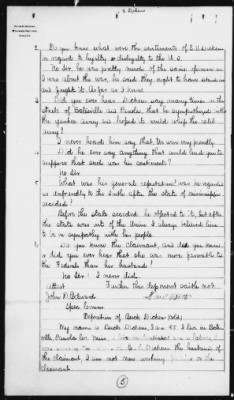 2. Do you know what were the sentiments of E. W. Dickens
in regards to loyalty or disloyalty to the U.S.
No Sir, he was pretty much of the same opinion as
I was about the war, he said they ought to have stood in
and fought it. As far as I know
3. Did you ever hear Dickens say many times on the
streets of Batesville and Panola, that he sympathized with
the yankee army and hoped it would whip the rebel
army?
I never heard him say that. We was very friendly.
4. Did he ever say anything that would lead you to
suppose that such was his sentiment?
No Sir
5. What was his general reputation? was he regarded
as unfriendly to the South after the state of Mississippi
seceded?
Before the state seceded he objected to it, but after
the state was out of the Union I always believed him
to be in sympathy with his people.
Do you know the claimant, and did you know
or did you ever hear that she was more favorable to
the Federals than his husband?
No Sir! I never did.
Further this deponent saith not
Attest
John D. Edwards
Spec. Comm.
Deposition of Buck Dickens (cold)
My name is Buck Dickens, I am 45. I live in Bates-
ville, Panola Co. Miss.
E. W. Dickens the husband of
the claimant, I am not now working for
claimant.
(5)